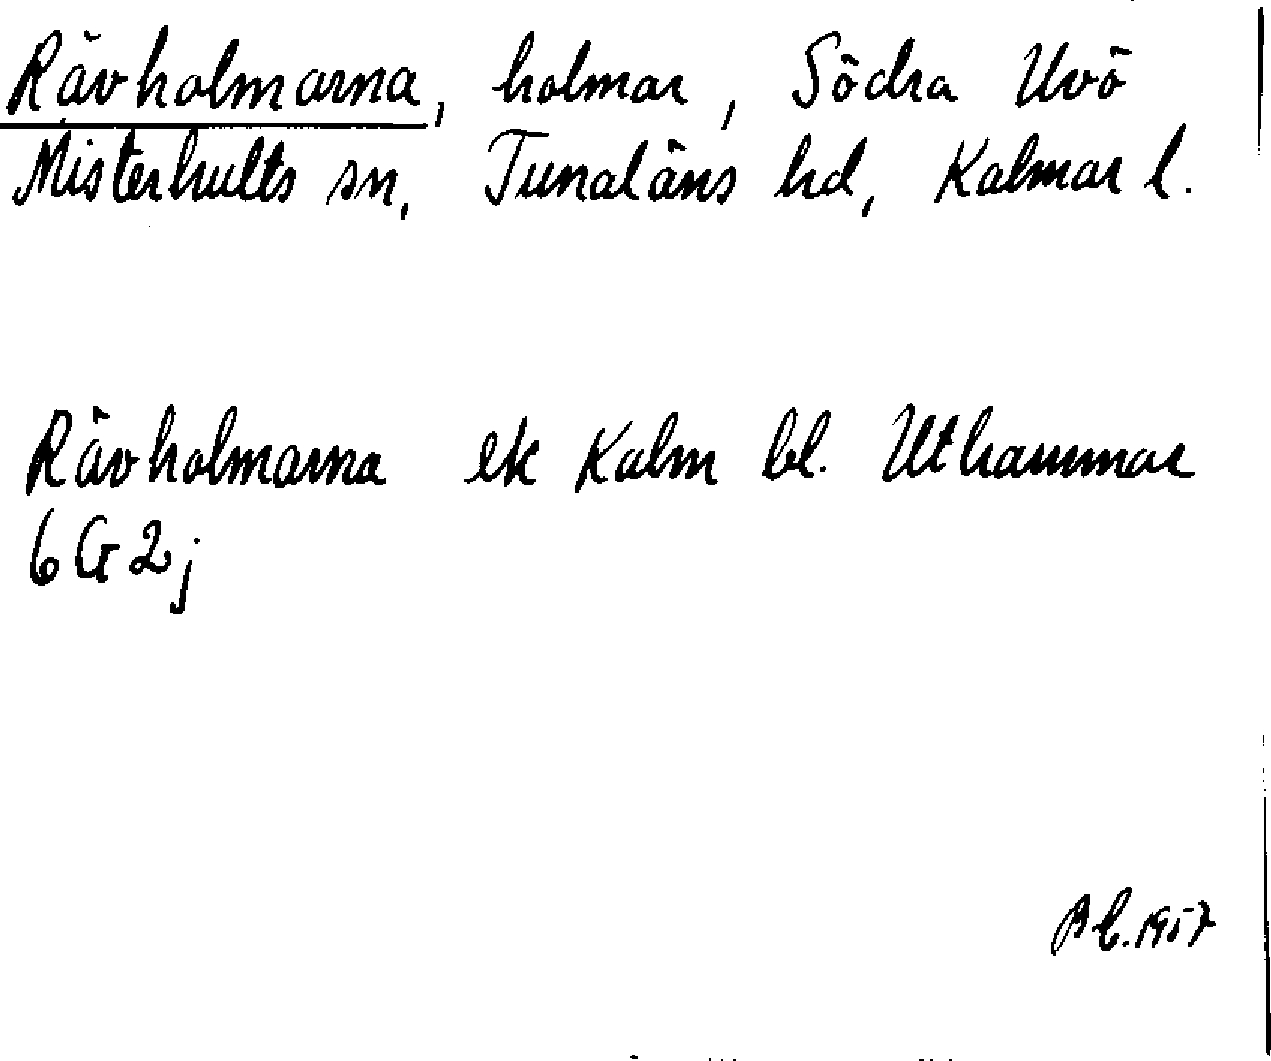 Rävholmarna, holmar, Södra Uvö
Misterhults sn, Tunaläns hd, Kalmar l.
Rävholmarna ek Kalm bl. Uthammar
6G2j
1957